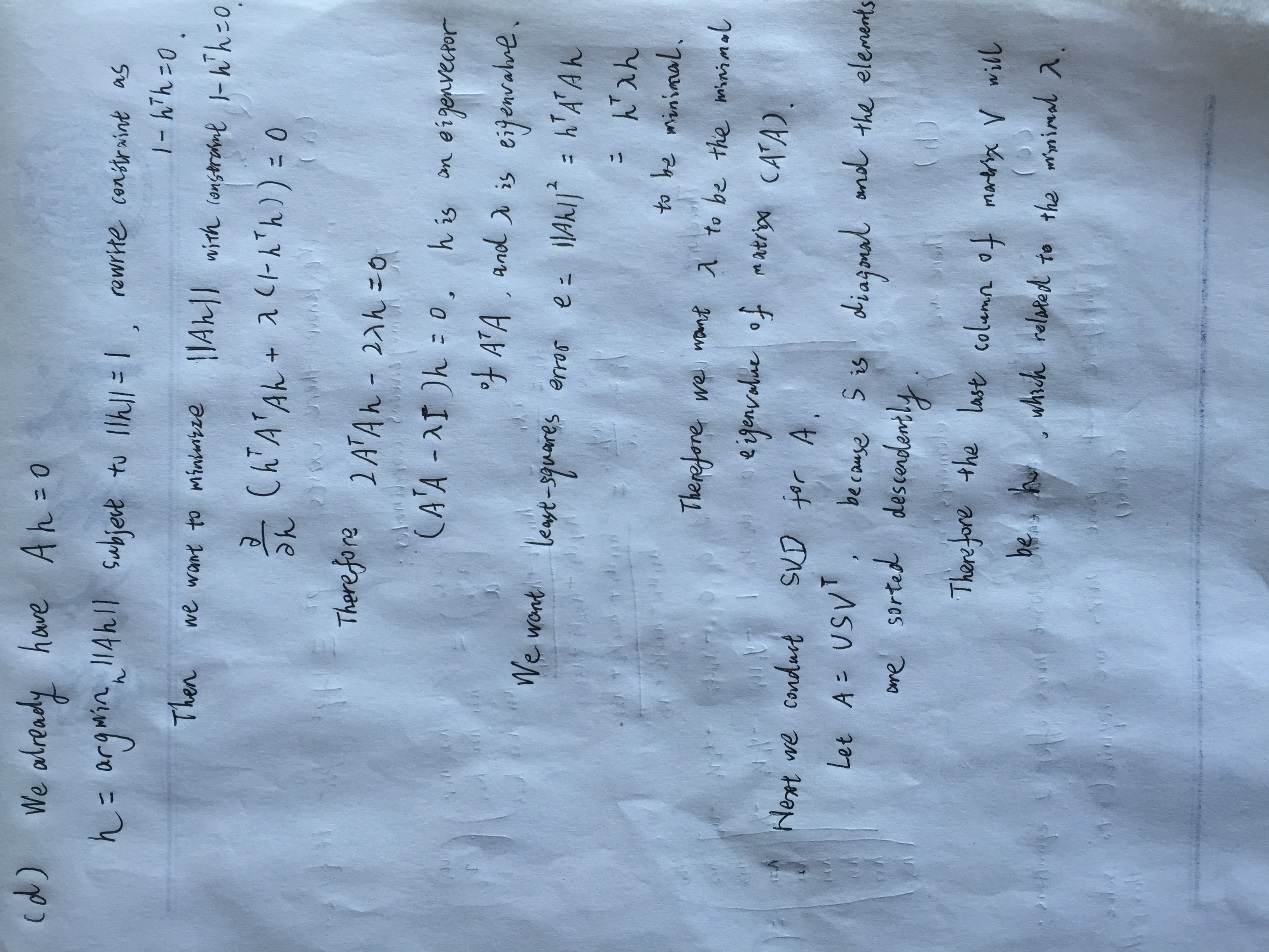 (d) We already have Ah=0
h = argmin_h ||Ah|| subject to ||h||=1, rewrite constraint as
1-hᵀh=0.
Then we want to minimize ||Ah|| with constraint 1-hᵀh=0.
∂/∂h (hᵀAᵀAh + λ(1-hᵀh))=0
Therefore 2AᵀAh - 2λh=0
(AᵀA - λI)h=0, h is an eigenvector
of AᵀA, and λ is eigenvalue.
We want least-squares error e= ||Ah||² = hᵀAᵀAh
= hᵀλh
to be minimal.
Therefore we want λ to be the minimal
eigenvalue of matrix (AᵀA).
Next we conduct SVD for A.
Let A = USVᵀ, because S is diagonal and the elements
are sorted descendently.
Therefore the last column of matrix V will
be h, which related to the minimal λ.